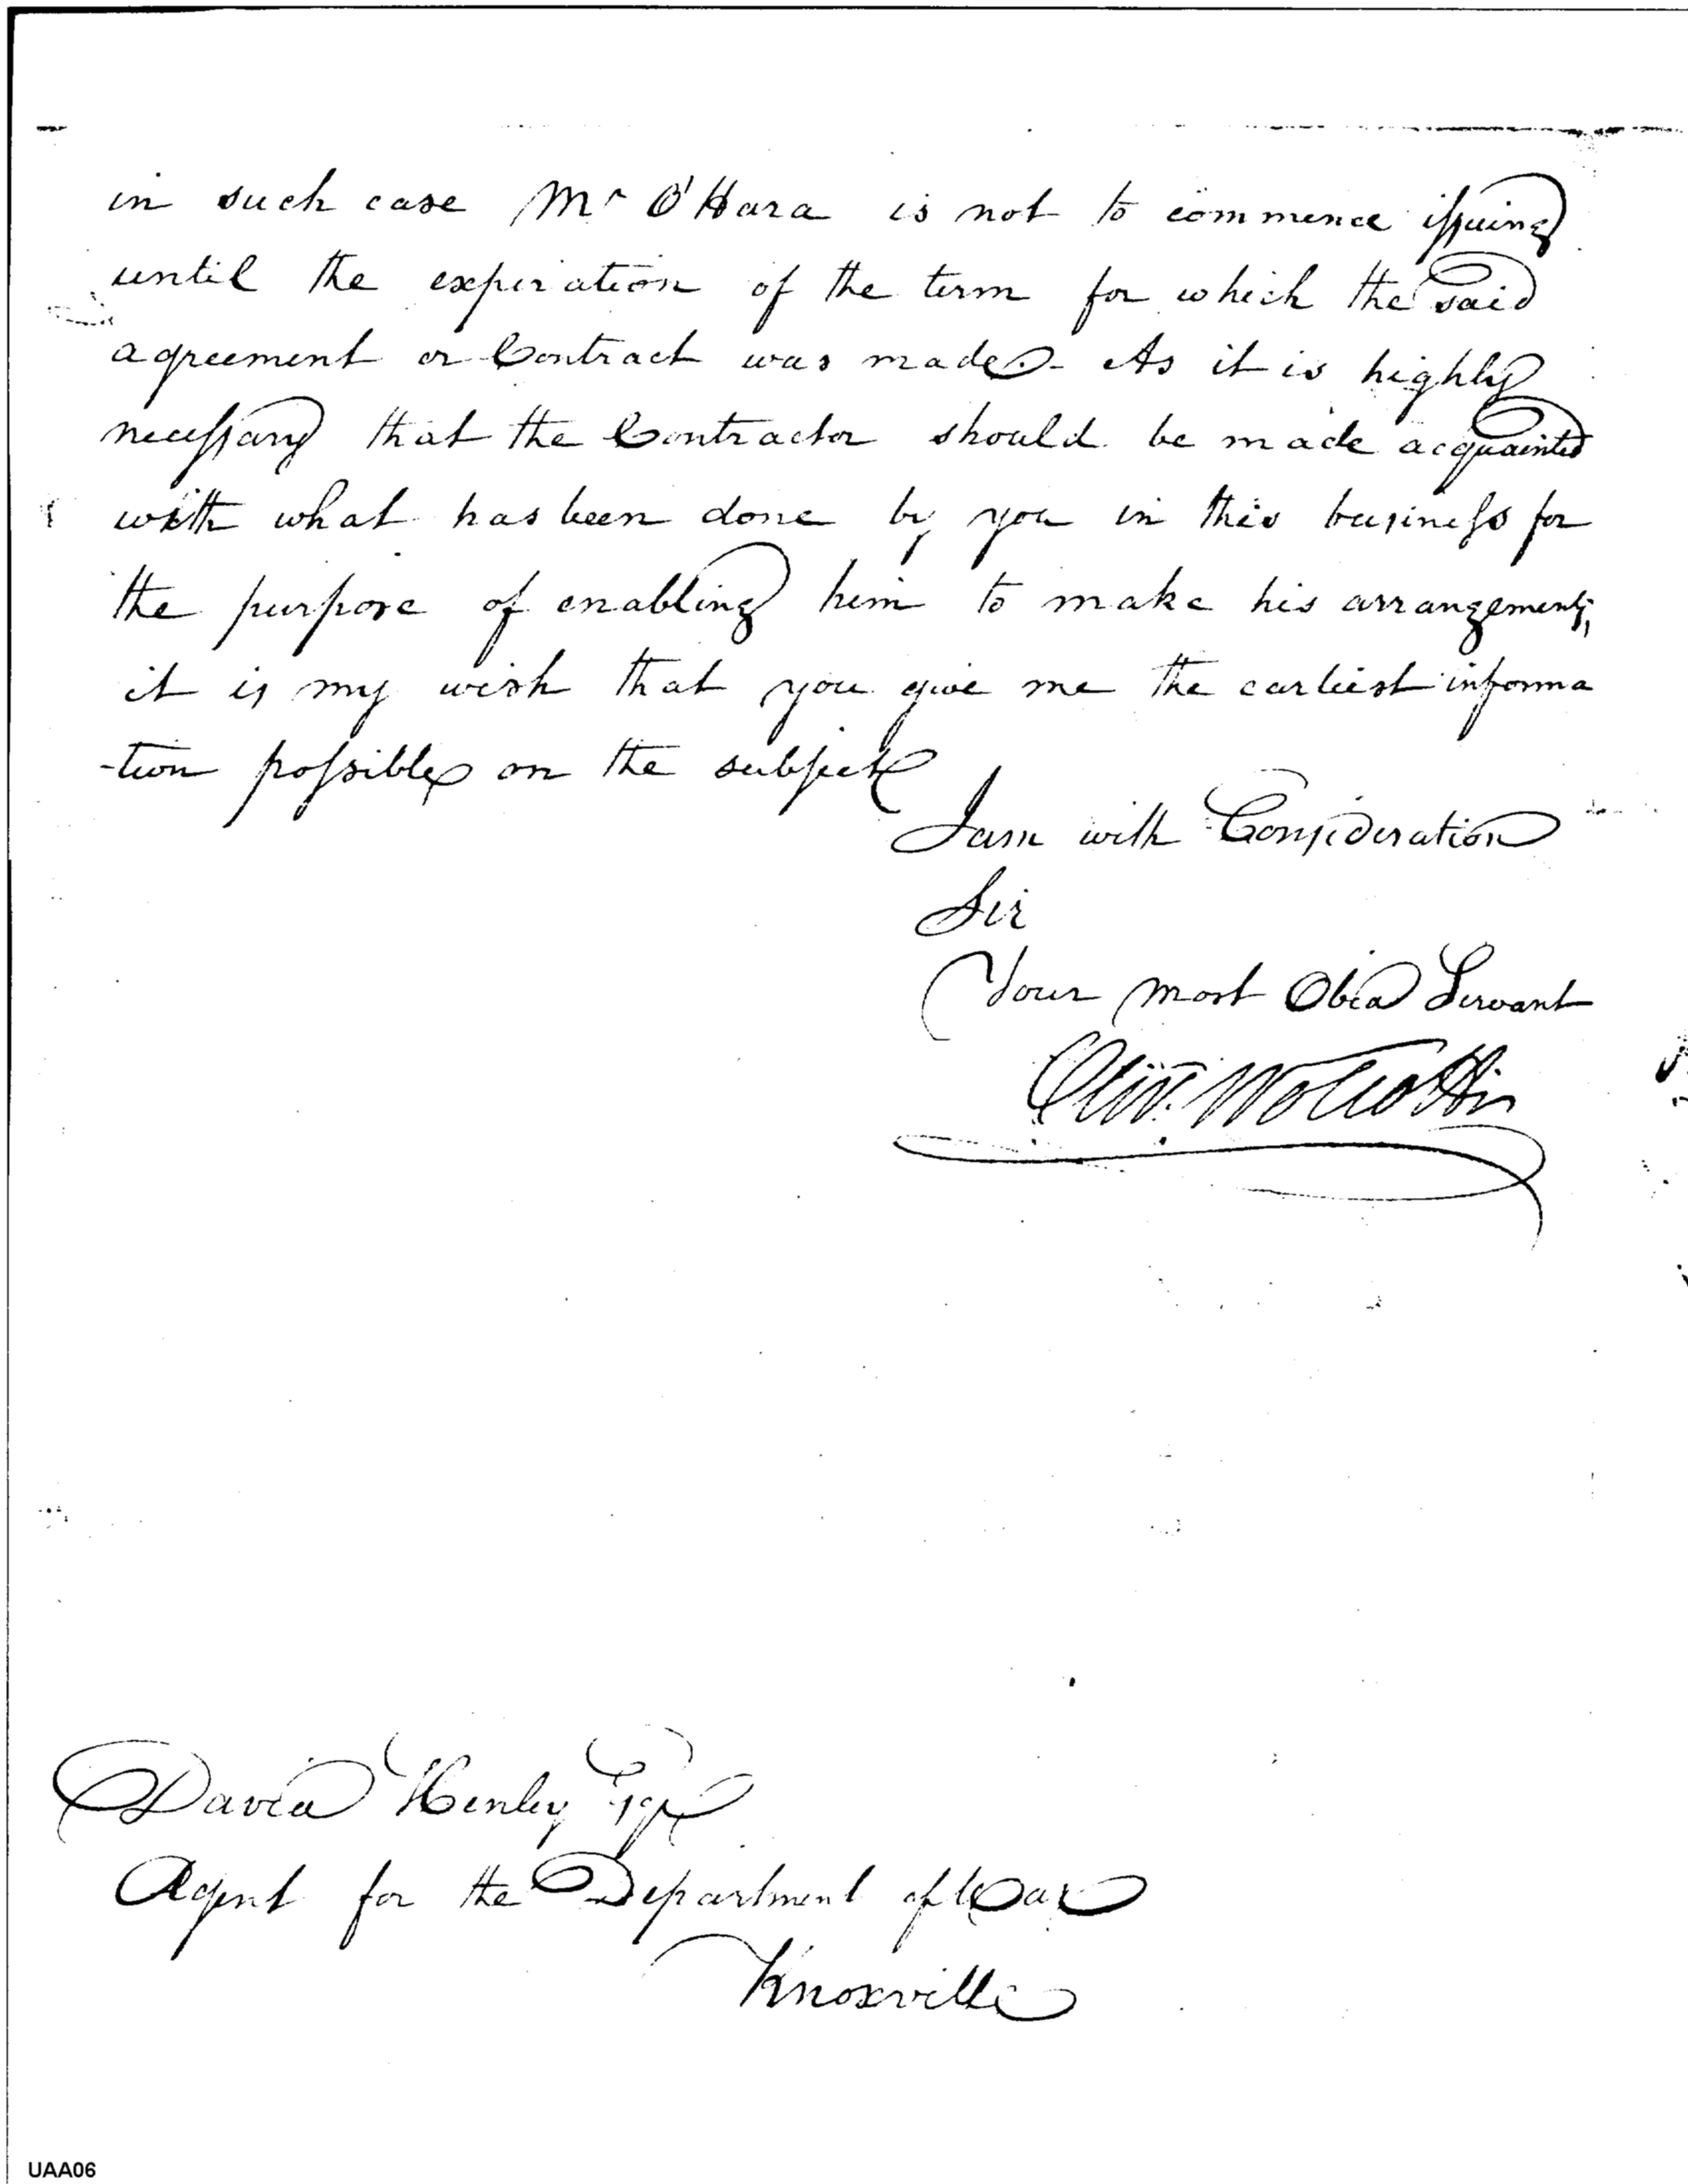 in such case Mr O'Hara is not to commence issuing
until the expiration of the term for which the said
agreement or Contract was made. - As it is highly
necessary that the Contractor should be made acquainted
with what has been done by you in this business for
the purpose of enabling him to make his arrangements,
it is my wish that you give me the earliest informa
-tion possible on the subject
I am with Consideration
Sir
Your most Obed Servant
Oliv. Wolcott Jr
David Henley Esqr
Agent for the Department of War
Knoxville
UAA06